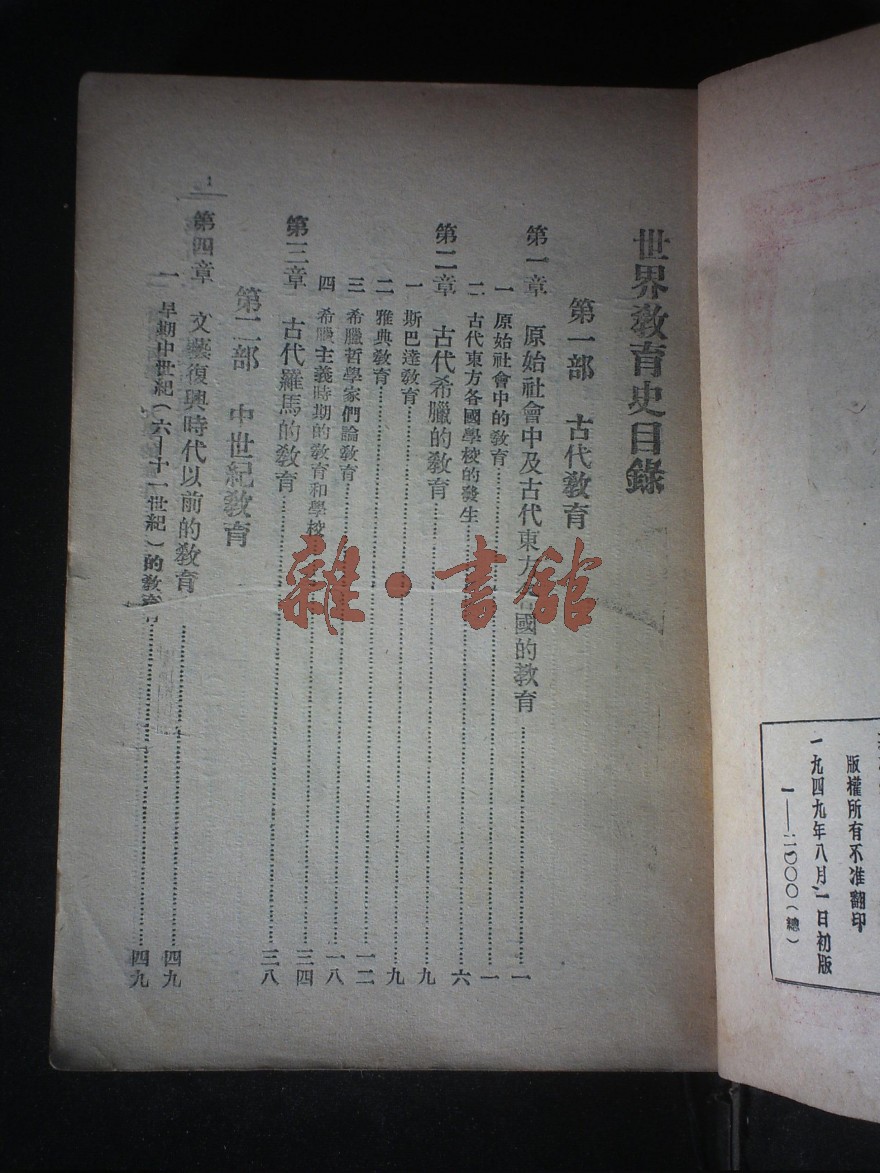 版權所有不准翻印
一九四九年八月一日初版
一——二〇〇〇（總）
世界教育史目錄
第一部 古代教育
第一章 原始社會中及古代東方各國的教育……一
一 原始社會中的教育……一
二 古代東方各國學校的發生……六
第二章 古代希臘的教育……九
一 斯巴達教育……九
二 雅典教育……一二
三 希臘哲學家們論教育……一八
四 希臘主義時期的教育和學校……三四
第三章 古代羅馬的教育……三八
第二部 中世紀教育
第四章 文藝復興時代以前的教育……四九
一 早期中世紀（六—十一世紀）的教育……四九
1
雜·書館